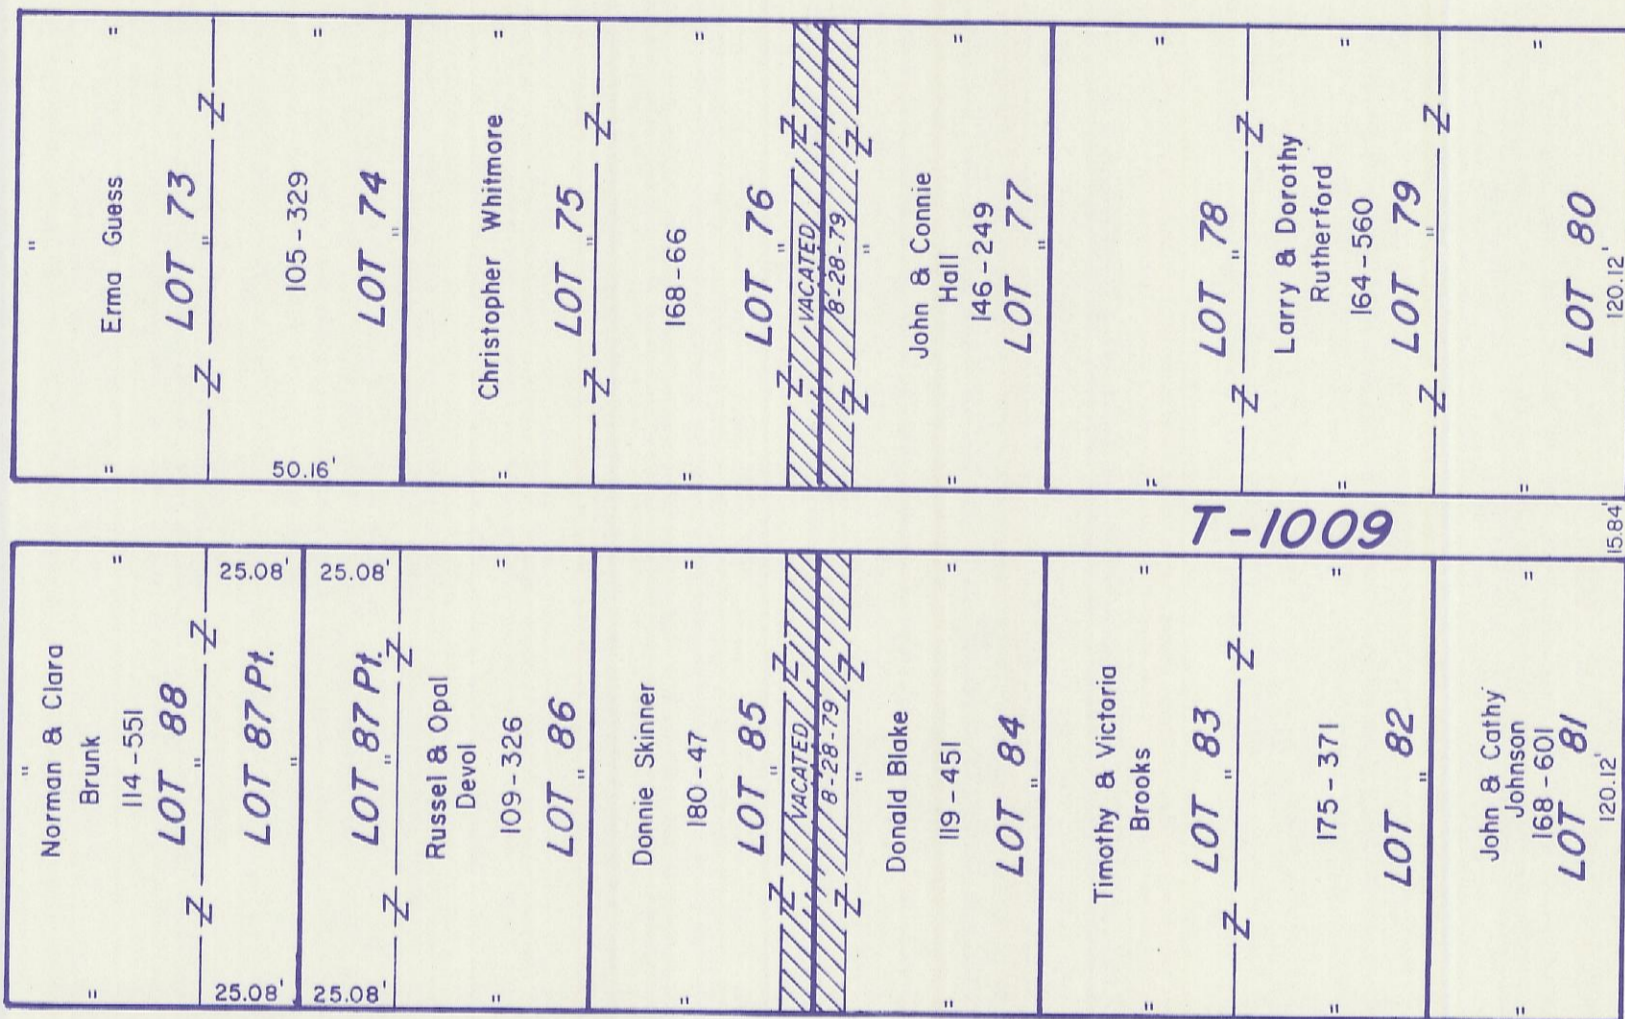 "
Erma Guess
"
"
LOT 73
"
50.16'
105-329
"
LOT 74
"
Christopher Whitmore
"
LOT 75
"
168-66
"
"
LOT 76
"
VACATED
8-28-79
"
John & Connie
Hall
"
"
146-249
LOT 77
"
"
"
LOT 78
"
Larry & Dorothy
Rutherford
"
"
164-560
LOT 79
"
"
"
LOT 80
120.12'
T-1009
15.84'
"
Norman & Clara
Brunk
"
"
114-551
LOT 88
"
25.08'
25.08'
LOT 87 Pt.
"
25.08'
25.08'
LOT 87 Pt.
"
Russel & Opal
Devol
"
"
109-326
LOT 86
"
Donnie Skinner
"
"
180-47
LOT 85
"
VACATED
8-28-79
"
Donald Blake
"
"
119-451
LOT 84
"
Timothy & Victoria
Brooks
"
"
LOT 83
"
175-371
"
"
LOT 82
"
John & Cathy
Johnson
"
"
168-601
LOT 81
120.12'